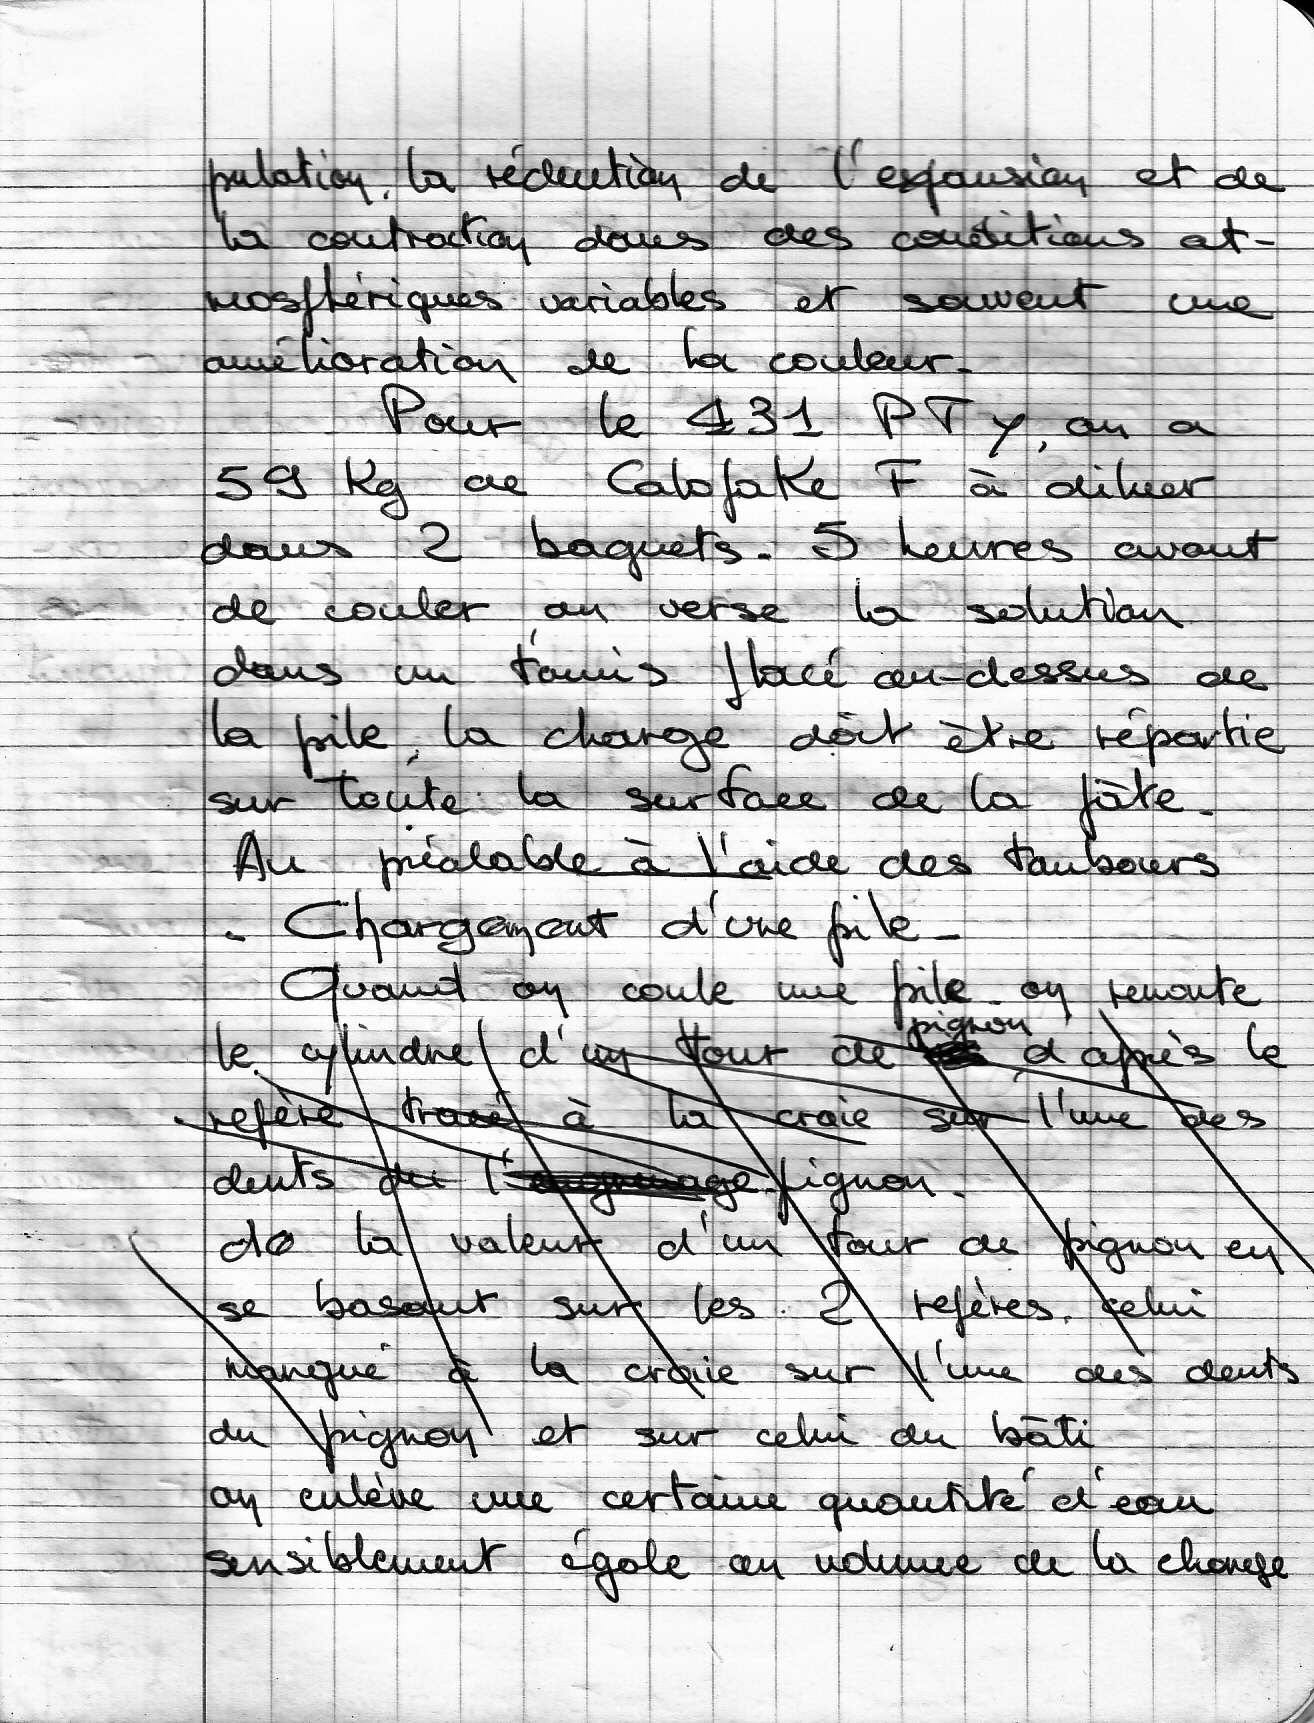 pulation, la réduction de l'expansion et de
la contraction dans des conditions at-
mosphériques variables et souvent une
amélioration de la couleur.
Pour le 431 PTY, on a
59 Kg de Calofake F à diluer
dans 2 baquets. 5 heures avant
de couler on verse la solution
dans un tamis placé au-dessus de
la pile, la charge doit être répartie
sur toute la surface de la pâte.
Au préalable à l'aide des tambours
- Chargement d'une pile -
Quand on coule une pile on remonte
le cylindre d'un tour de pignon d'après le
repère tracé à la craie sur l'une des
dents du l'engrenage pignon.
de la valeur d'un tour de pignon en
se basant sur les 2 repères, celui
marqué à la craie sur l'une des dents
du pignon et sur celui du bâti
on enlève une certaine quantité d'eau
sensiblement égale au volume de la charge